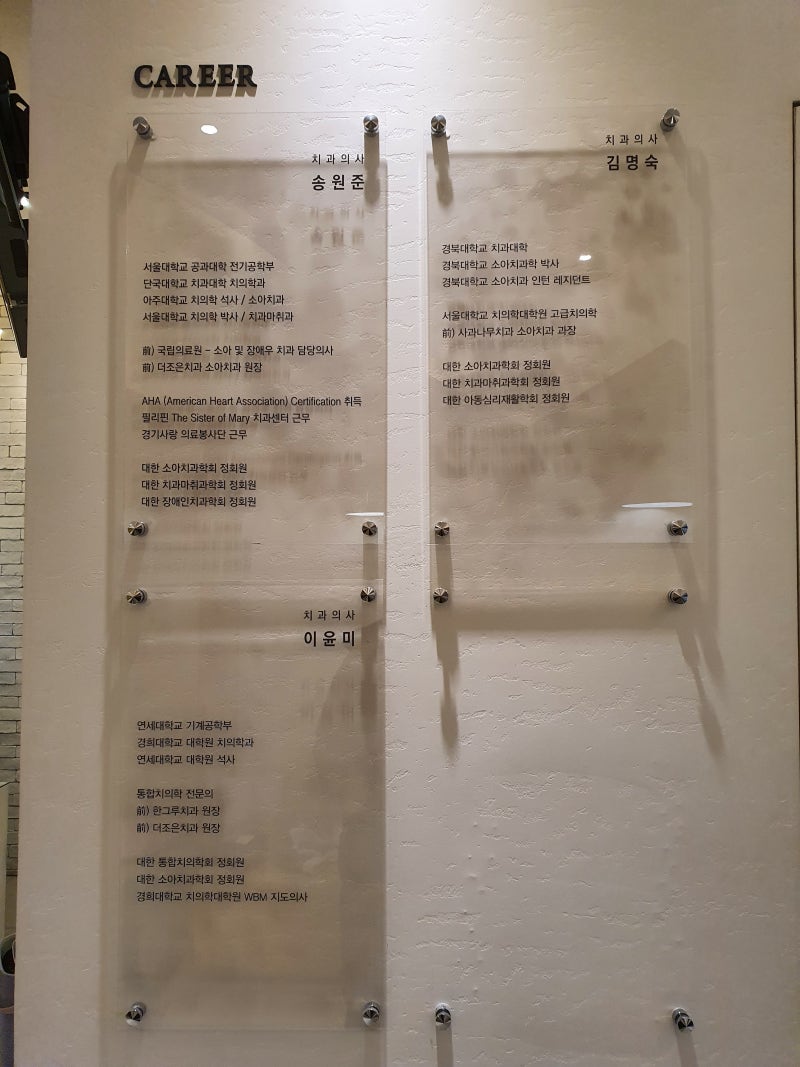 CAREER
치과의사
송원준
서울대학교 공과대학 전기공학부
단국대학교 치과대학 치의학과
아주대학교 치의학 석사 / 소아치과
서울대학교 치의학 박사 / 치과마취과
前) 국립의료원 - 소아 및 장애우 치과 담당의사
前) 더조은치과 소아치과 원장
AHA (American Heart Association) Certification 취득
필리핀 The Sister of Mary 치과센터 근무
경기사랑 의료봉사단 근무
대한 소아치과학회 정회원
대한 치과마취과학회 정회원
대한 장애인치과학회 정회원
치과의사
김명숙
경북대학교 치과대학
경북대학교 소아치과학 박사
경북대학교 소아치과 인턴 레지던트
서울대학교 치의학대학원 고급치의학
前) 사과나무치과 소아치과 과장
대한 소아치과학회 정회원
대한 치과마취과학회 정회원
대한 아동심리재활학회 정회원
치과의사
이윤미
연세대학교 기계공학부
경희대학교 대학원 치의학과
연세대학교 대학원 석사
통합치의학 전문의
前) 한그루치과 원장
前) 더조은치과 원장
대한 통합치의학회 정회원
대한 소아치과학회 정회원
경희대학교 치의학대학원 WBM 지도의사